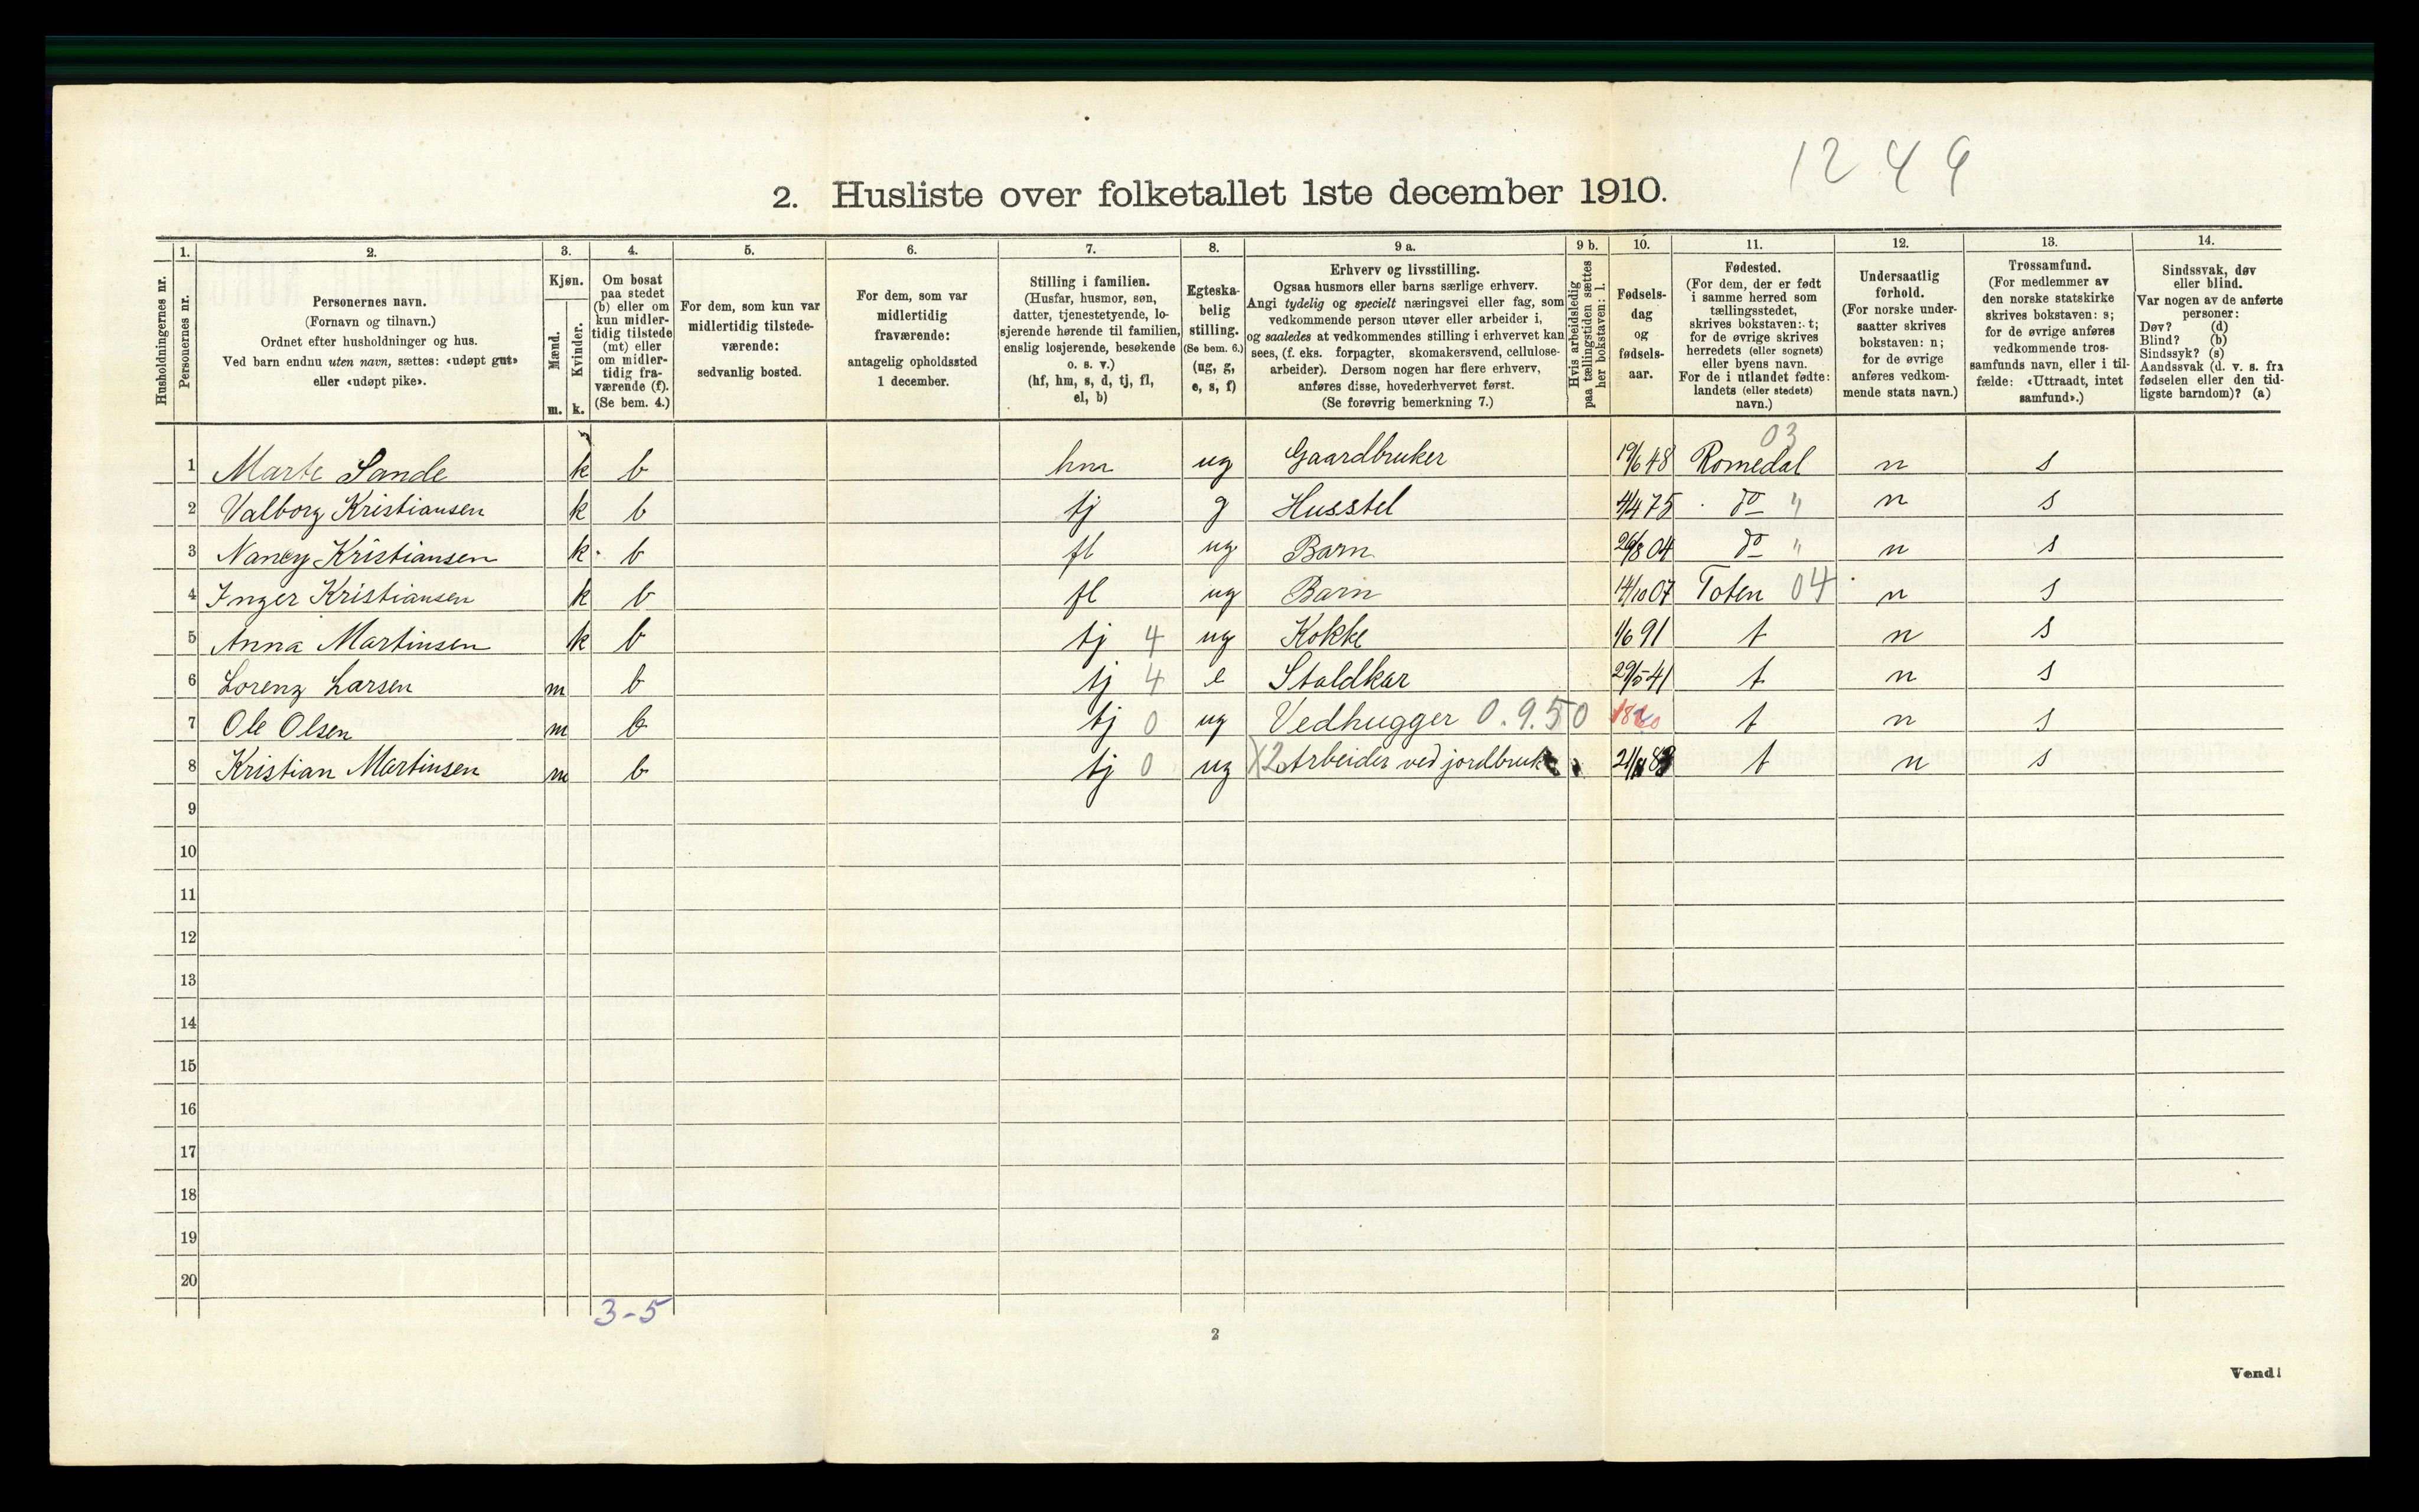 1249
2. Husliste over folketallet 1ste december 1910.
Husholdningernes nr.
1. Personernes nr.
2. Personernes navn. (Fornavn og tilnavn.) Ordnet efter husholdninger og hus. Ved barn endnu uten navn, sættes: «udøpt gut» eller «udøpt pike».
3. Kjøn. Mænd. m. Kvinder. k.
4. Om bosat paa stedet (b) eller om kun midlertidig tilstede (mt) eller om midlertidig fraværende (f). (Se bem. 4.)
5. For dem, som kun var midlertidig tilstedeværende: sedvanlig bosted.
6. For dem, som var midlertidig fraværende: antagelig opholdssted 1 december.
7. Stilling i familien. (Husfar, husmor, søn, datter, tjenestetyende, losjerende hørende til familien, enslig losjerende, besøkende o. s. v.) (hf, hm, s, d, tj, fl, el, b)
8. Egteskabelig stilling. (Se bem. 6.) (ug, g, e, s, f)
9 a. Erhverv og livsstilling. Ogsaa husmors eller barns særlige erhverv. Angi tydelig og specielt næringsvei eller fag, som vedkommende person utøver eller arbeider i, og saaledes at vedkommendes stilling i erhvervet kan sees, (f. eks. forpagter, skomakersvend, cellulosearbeider). Dersom nogen har flere erhverv, anføres disse, hovederhvervet først. (Se forøvrig bemerkning 7.)
9 b. Hvis arbeidsledig paa tællingstiden sættes her bokstaven: l.
10. Fødselsdag og fødselsaar.
11. Fødested. (For dem, der er født i samme herred som tællingsstedet, skrives bokstaven: t; for de øvrige skrives herredets (eller sognets) eller byens navn. For de i utlandet fødte: landets (eller stedets) navn.)
12. Undersaatlig forhold. (For norske undersaatter skrives bokstaven: n; for de øvrige anføres vedkommende stats navn.)
13. Trossamfund. (For medlemmer av den norske statskirke skrives bokstaven: s; for de øvrige anføres vedkommende trossamfunds navn, eller i tilfælde: «Uttraadt, intet samfund».)
14. Sindssvak, døv eller blind. Var nogen av de anførte personer: Døv? (d) Blind? (b) Sindssyk? (s) Aandssvak (d. v. s. fra fødselen eller den tidligste barndom)? (a)
03
1 Marte Sande k b hm ug Gaardbruker 19/6 48 Romedal n s
2 Valborg Kristiansen k b tj g Husstel 4/4 75 do " n s
3 Nancy Kristiansen k b fl ug Barn 26/8 04 do " n s
4 Inger Kristiansen k b fl ug Barn 14/10 07 Toten 04 n s
5 Anna Martinsen k b tj 4 ug Kokke 1/6 91 t n s
6 Lorenz Larsen m b tj 4 e Staldkar 29/5 41 t n s
7 Ole Olsen m b tj 0 ug Vedhugger 0.9.50 t n s
8 Kristian Martinsen m b tj 0 ug X2 Arbeider ved jordbruk t n s
9
10
11
12
13
14
15
16
17
18
19
20
3-5
2
Vend!